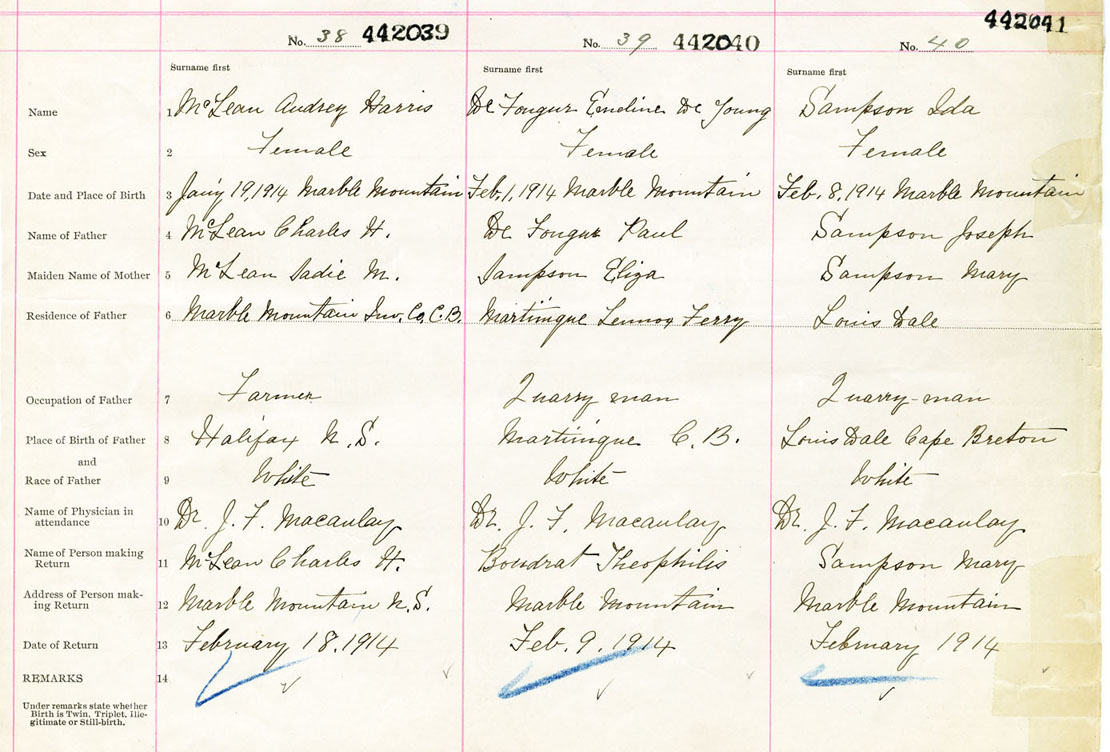 No. 38 442039 No. 39 442040 No. 40 442041
Surname first Surname first Surname first
Name 1 McLean Audrey Harris De Young Sampson Ida
Sex 2 Female Female Female
Date and Place of Birth 3 Jan'y 19, 1914 Marble Mountain Feb. 1, 1914 Marble Mountain Feb. 8, 1914 Marble Mountain
Name of Father 4 McLean Charles H. Paul Sampson Joseph
Maiden Name of Mother 5 McLean Sadie M. Sampson Eliza Sampson Mary
Residence of Father 6 Marble Mountain Inv. Co. C.B. Martinque Lennox Ferry Louis Dale
Occupation of Father 7 Farmer Quarry man Quarry-man
Place of Birth of Father 8 Halifax N.S. Martinque C.B. Louis Dale Cape Breton
and
Race of Father 9 White White White
Name of Physician in attendance 10 Dr. J. F. Macaulay Dr. J. F. Macaulay Dr. J. F. Macaulay
Name of Person making Return 11 McLean Charles H. Boudrat Theophilis Sampson Mary
Address of Person making Return 12 Marble Mountain N.S. Marble Mountain Marble Mountain
Date of Return 13 February 18, 1914 Feb. 9, 1914 February 1914
REMARKS 14
Under remarks state whether
Birth is Twin, Triplet, Ille-
gitimate or Still-birth.